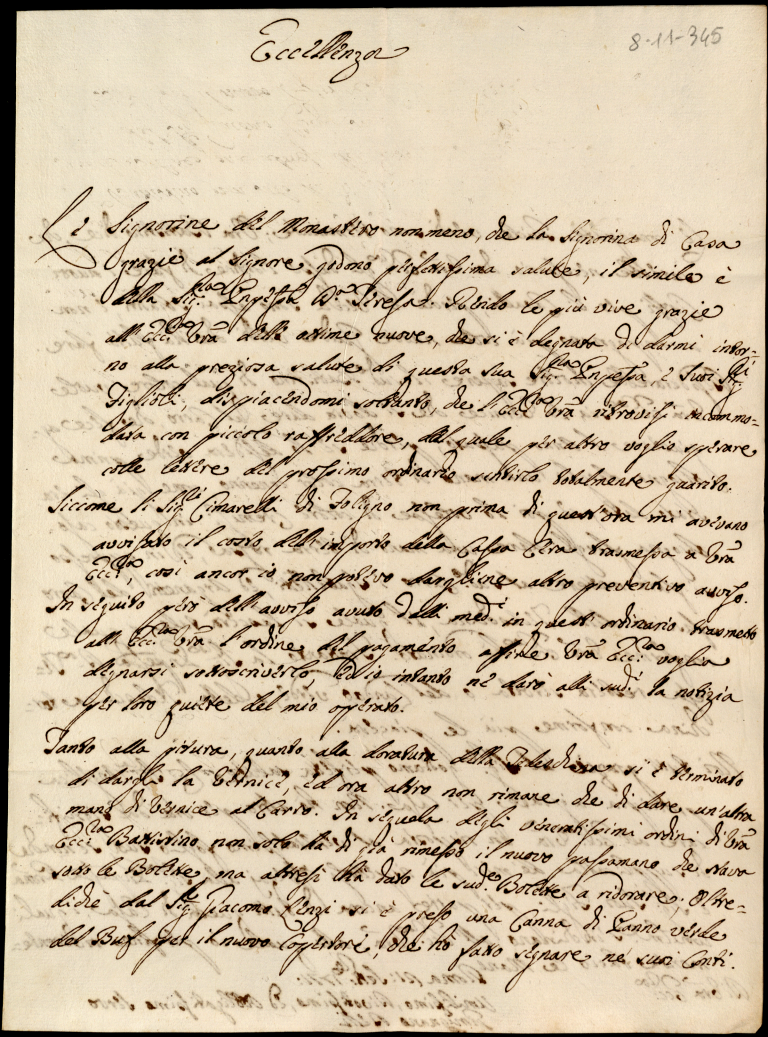 8-11-345
Eccellenza
Le Signorine del Monastero non meno, che la Signorina di Casa
grazie al Signore godono perfettissima salute, il simile è
della Sig.ra Teresa. Rendo le più vive grazie
all'Ecc.za Vra delle ottime nuove, che si è degnata di darmi intor=
no alla preziosa salute di questa sua Sig.ra, e Suoi Sig.i
Figlioli, dispiacendomi soltanto, che l'Ecc.za Vra ritrovisi incommo=
data con piccolo raffreddore, del quale per altro voglio sperare
colle lettere del prossimo ordinario sentirlo totalmente guarito.
Siccome li Sig.ri Cimarelli di Foligno non prima di quest'ora mi avevano
avvisato il costo dell'importo della Cassa Cera trasmessa a Vra
Ecc.za, così ancor io non potevo dargliene altro preventivo avviso.
In seguito però dell'avviso avuto dalli med.i in quest'ordinario trasmetto
all'Ecc.za Vra l'ordine del pagamento affine Vra Ecc.za voglia
degnarsi sottoscriverlo, ed io intanto ne darò alli sud.i la notizia
per loro quiete del mio operato.
Tanto alla pitura, quanto alla doratura della si è terminato
di dargle la vernice, ed ora altro non rimane che di dare un'altra
mano di vernice al Carro. In sequela degli veneratissimi ordini di Vra
Ecc.za Battistino non solo ha di già rimesso il nuovo passamano che stava
sotto le Bolette, ma altresì hà dato le sud.e Bolette a ridorare; oltre=
dichè dal Sig.re Giacomo Renzi si è preso una Canna di Panno verde
del Buf per il nuovo Copertore, che hò fatto segnare ne suoi Conti.